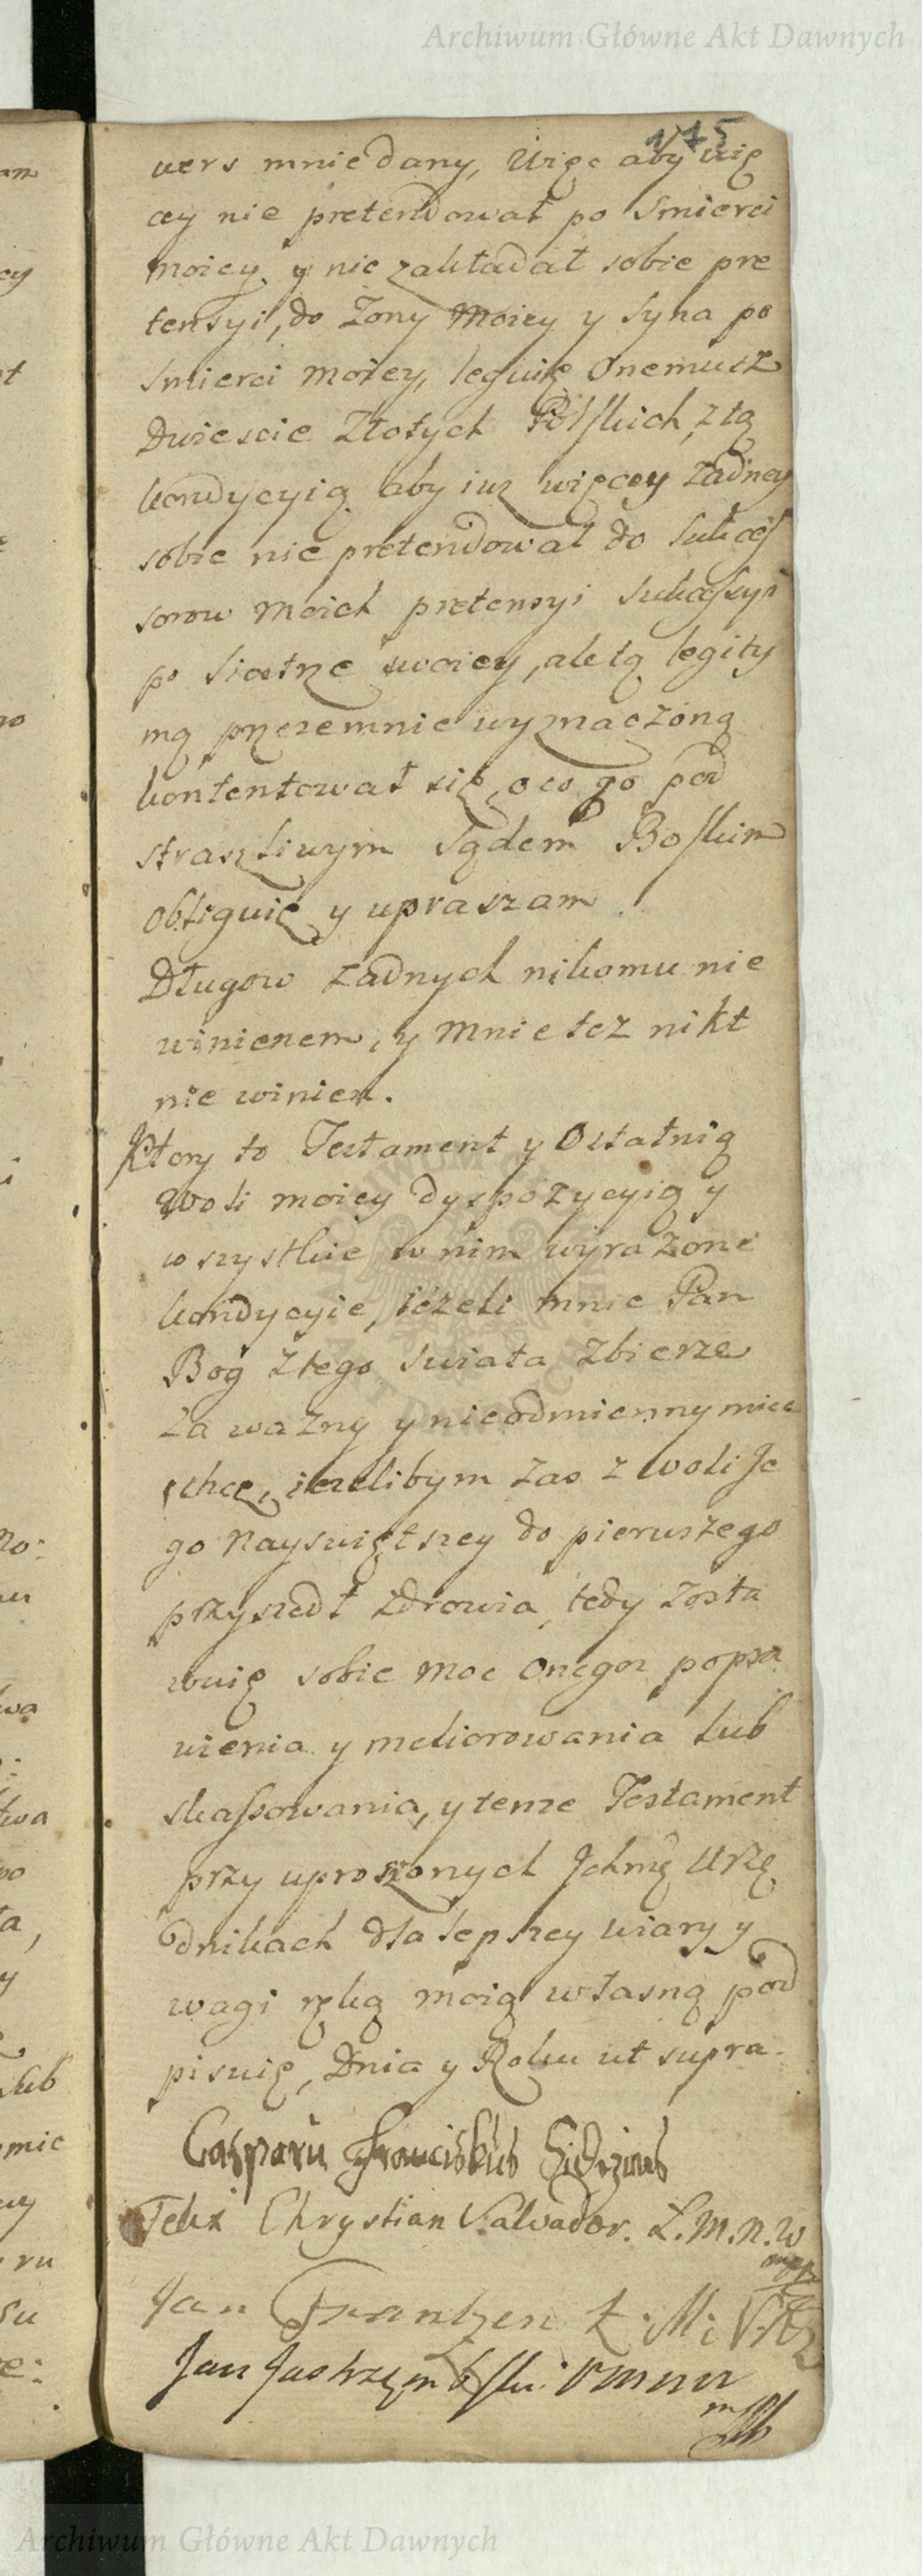 Archiwum Główne Akt Dawnych
175
wers mnie dany, Więc aby wię
cey nie pretendował po Smierci
moiey y nie zakładał sobie pre
tensyi, do Zony Moiey y Syna po
Smierci Moiey, leguię Onemusz
Dwiescie Złotych Polskich, z tą
kondycyią aby iuz więcey Zadney
sobie nie pretendował do Sukces
sorow Moich pretensyi Sukcessyi
po Siostrze swoiey, ale tą legity
mą przezemnie wyznaczoną
kontentował się, o co go pod
straszliwym Sądem Boskim
obliguię y upraszam
Długow Zadnych nikomu nie
winienem, y Mnie tez nikt
nie winien.
Ktory to Testament y Ostatnią
Woli moiey dyspozycyią y
wszystkie w nim wyrazone
kondycyie, iezeli mnie Pan
Bog z tego Swiata Zbierze
Za wazny y nieodmienny miec
chcę, iezelibym Zas z Woli Je
go Nayswiętszey do pierwszego
przyszedł Zdrowia, tedy Zosta
wuię sobie Moc Onegoz popra
wienia y meliorowania lub
skassowania, y tenze Testament
przy uproszonych Ichmę Urzę
dnikach dla lepszey wiary y
wagi ręką moią własną pod
pisuię, Dnia y Roku ut supra.
Franciskus
Felix Chrystian Salvador. Ł. M. n. W
mpp
Jan Frantzen Ł. M.
Jan Jastrzembski
Archiwum Główne Akt Dawnych